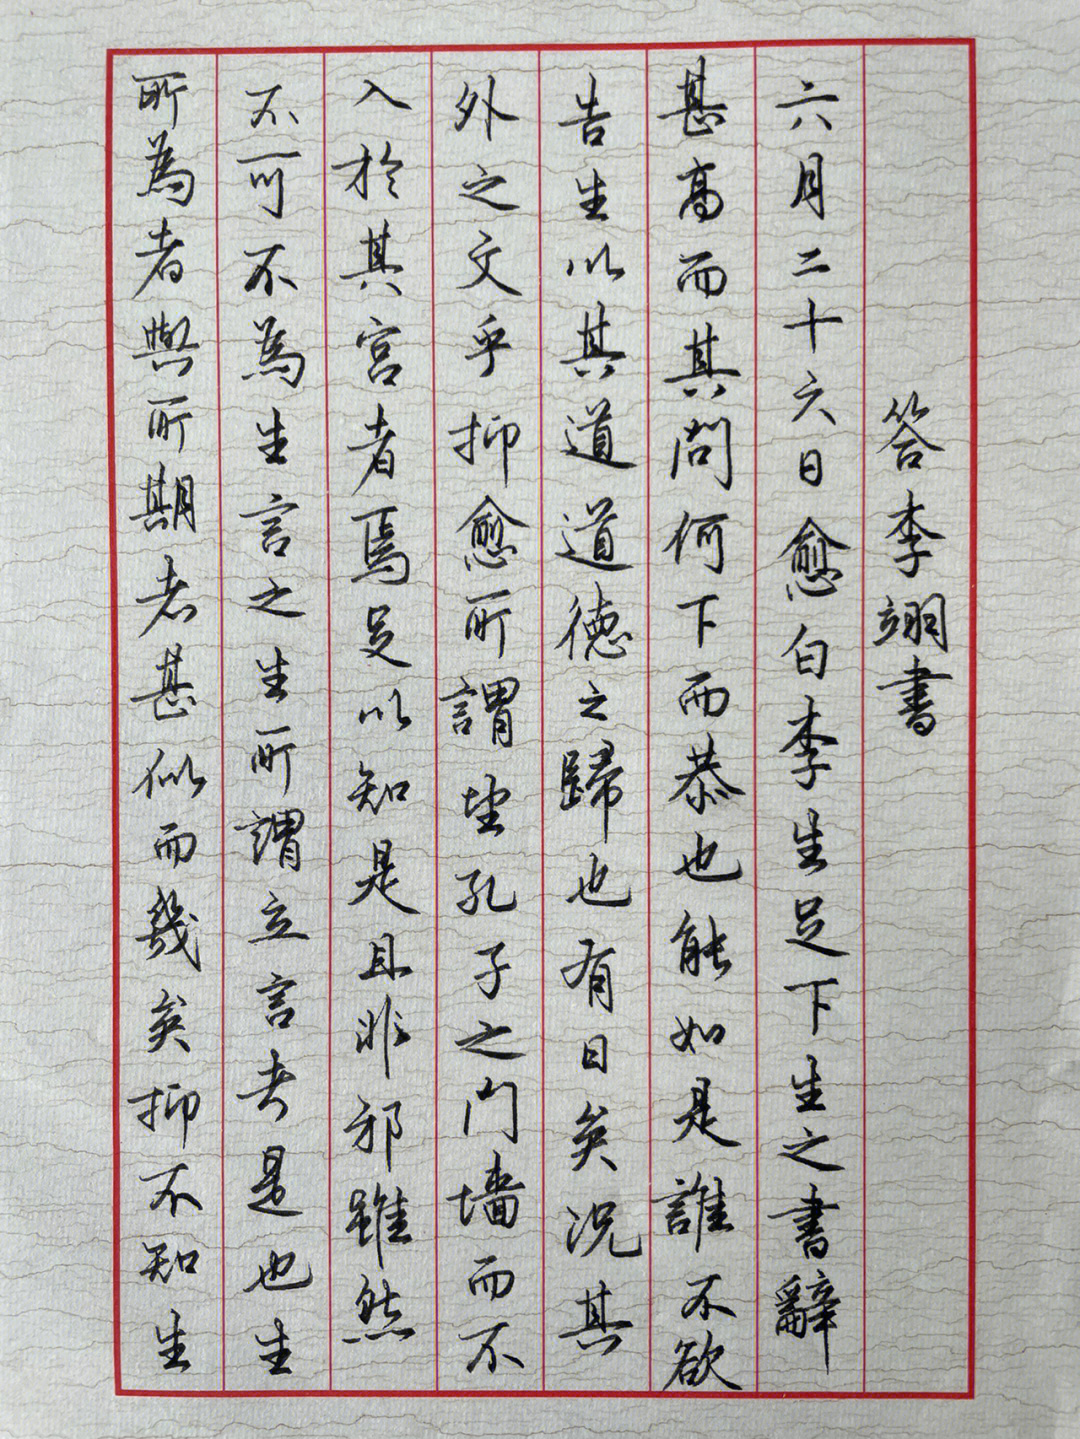 答李翊書
六月二十六日愈白李生足下生之書辭
甚高而其問何下而恭也能如是誰不欲
告生以其道道德之歸也有日矣況其
外之文乎抑愈所謂望孔子之门墙而不
入於其宮者焉足以知是且非邪雖然
不可不為生言之生所謂立言者是也生
所為者與所期者甚似而幾矣抑不知生